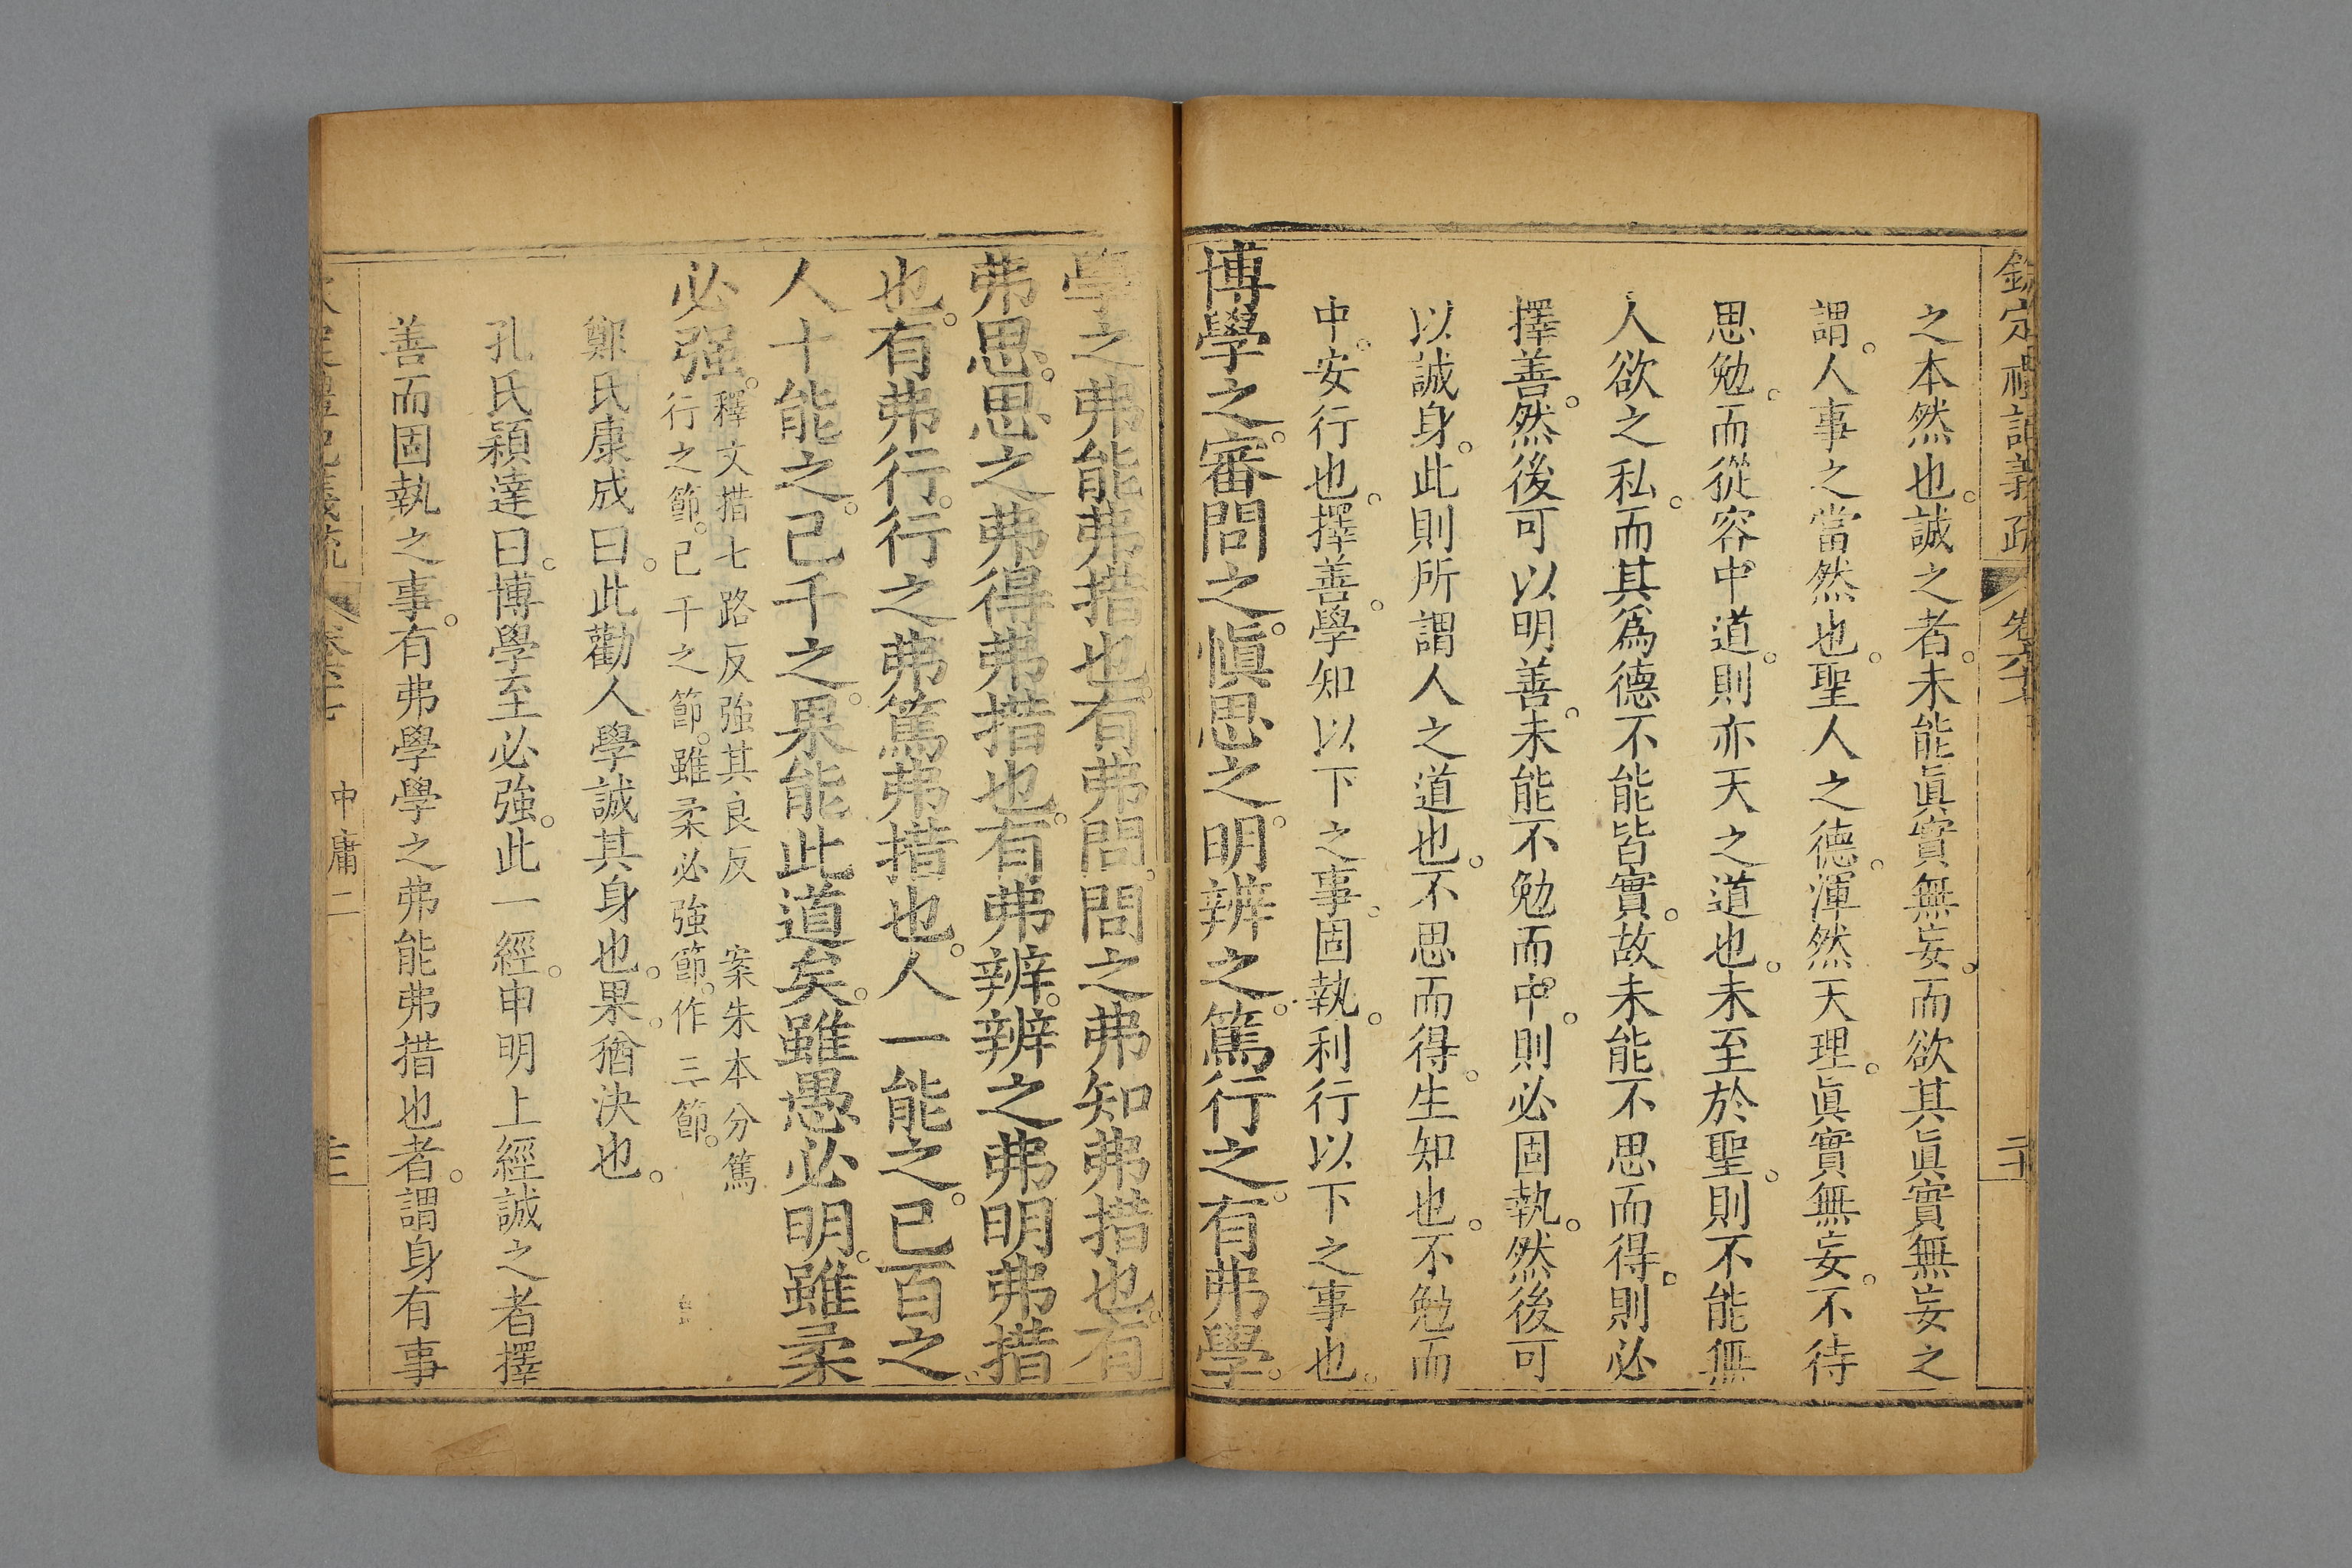 欽定禮記義疏 卷六十七 二十
之本然也。誠之者。未能眞實無妄。而欲其眞實無妄之
謂。人事之當然也。聖人之德。渾然天理。眞實無妄。不待
思勉。而從容中道。則亦天之道也。未至於聖。則不能無
人欲之私。而其爲德不能皆實。故未能不思而得。則必
擇善。然後可以明善。未能不勉而中。則必固執。然後可
以誠身。此則所謂人之道也。不思而得。生知也。不勉而
中。安行也。擇善。學知以下之事。固執。利行以下之事也。
博學之。審問之。愼思之。明辨之。篤行之。有弗學。
學之弗能弗措也。有弗問。問之弗知弗措也。有
弗思。思之弗得弗措也。有弗辨。辨之弗明弗措
也。有弗行。行之弗篤弗措也。人一能之。己百之。
人十能之。己千之。果能此道矣。雖愚必明。雖柔
必强。
釋文措七路反強其良反 案朱本分篤
行之節。己千之節。雖柔必強節。作三節。
鄭氏康成曰。此勸人學誠其身也。果。猶決也。
孔氏穎達曰。博學至必強。此一經。申明上經誠之者擇
善而固執之事。有弗學學之弗能弗措也者。謂身有事
中庸二